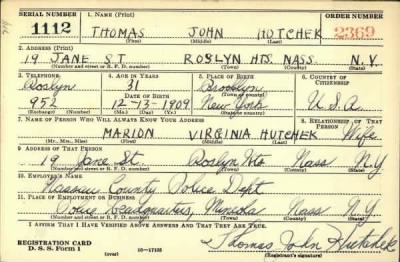 SERIAL NUMBER 1. NAME (Print) ORDER NUMBER
1112 THOMAS JOHN HUTCHEK 2369
(First) (Middle) (Last)
2. ADDRESS (Print)
19 JANE ST. ROSLYN HTS. NASS. N.Y.
(Number and street or R. F. D. number) (Town) (County) (State)
3. TELEPHONE 4. AGE IN YEARS 5. PLACE OF BIRTH 6. COUNTRY OF CITIZENSHIP
Roslyn 31 Brooklyn
DATE OF BIRTH (Town or county)
952 12-13-1909 New York U.S.A.
(Exchange) (Number) (Mo.) (Day) (Yr.) (State or country)
7. NAME OF PERSON WHO WILL ALWAYS KNOW YOUR ADDRESS 8. RELATIONSHIP OF THAT PERSON
MARION VIRGINIA HUTCHEK Wife
(Mr., Mrs., Miss) (First) (Middle) (Last)
9. ADDRESS OF THAT PERSON
19 Jane St. Roslyn Hts Nass N.Y.
(Number and street or R. F. D. number) (Town) (County) (State)
10. EMPLOYER'S NAME
Nassau County Police Dept
11. PLACE OF EMPLOYMENT OR BUSINESS
Police Headquarters, Mineola Nass N.Y.
(Number and street or R. F. D. number) (Town) (County) (State)
I AFFIRM THAT I HAVE VERIFIED ABOVE ANSWERS AND THAT THEY ARE TRUE.
REGISTRATION CARD
D. S. S. Form 1 (over) 16-17105 Thomas John Hutchek
(Registrant's signature)